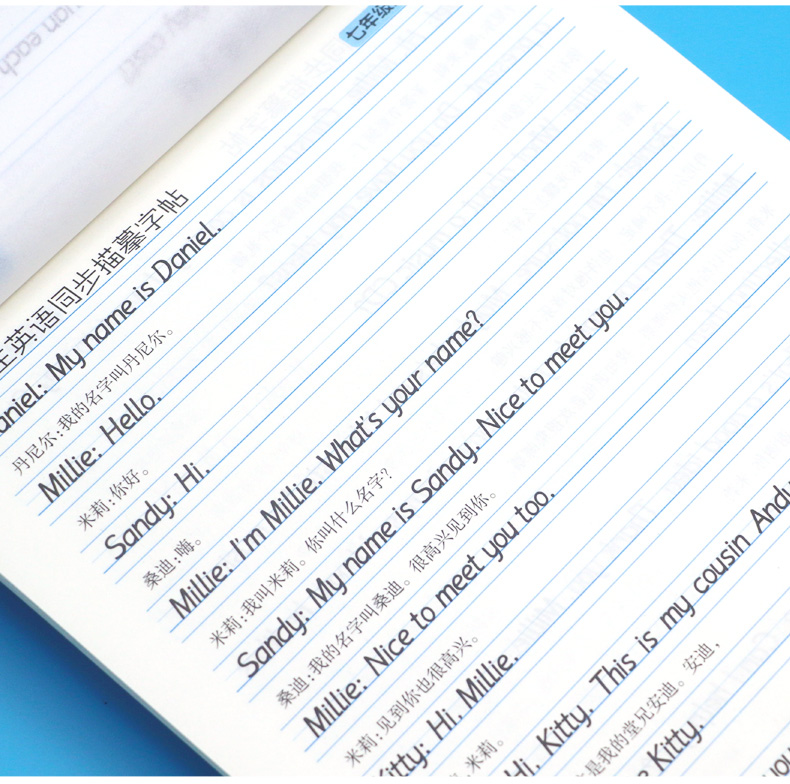 七年级
英语同步描摹字帖
Daniel: My name is Daniel.
丹尼尔:我的名字叫丹尼尔。
Millie: Hello.
米莉:你好。
Sandy: Hi.
桑迪:嗨。
Millie: I'm Millie. What's your name?
米莉:我叫米莉。你叫什么名字?
Sandy: My name is Sandy. Nice to meet you.
桑迪:我的名字叫桑迪。很高兴见到你。
Millie: Nice to meet you too.
米莉:见到你也很高兴。
Kitty: Hi, Millie.
米莉。
Hi, Kitty. This is my cousin Andy
是我的堂兄安迪。安迪,
Kitty.